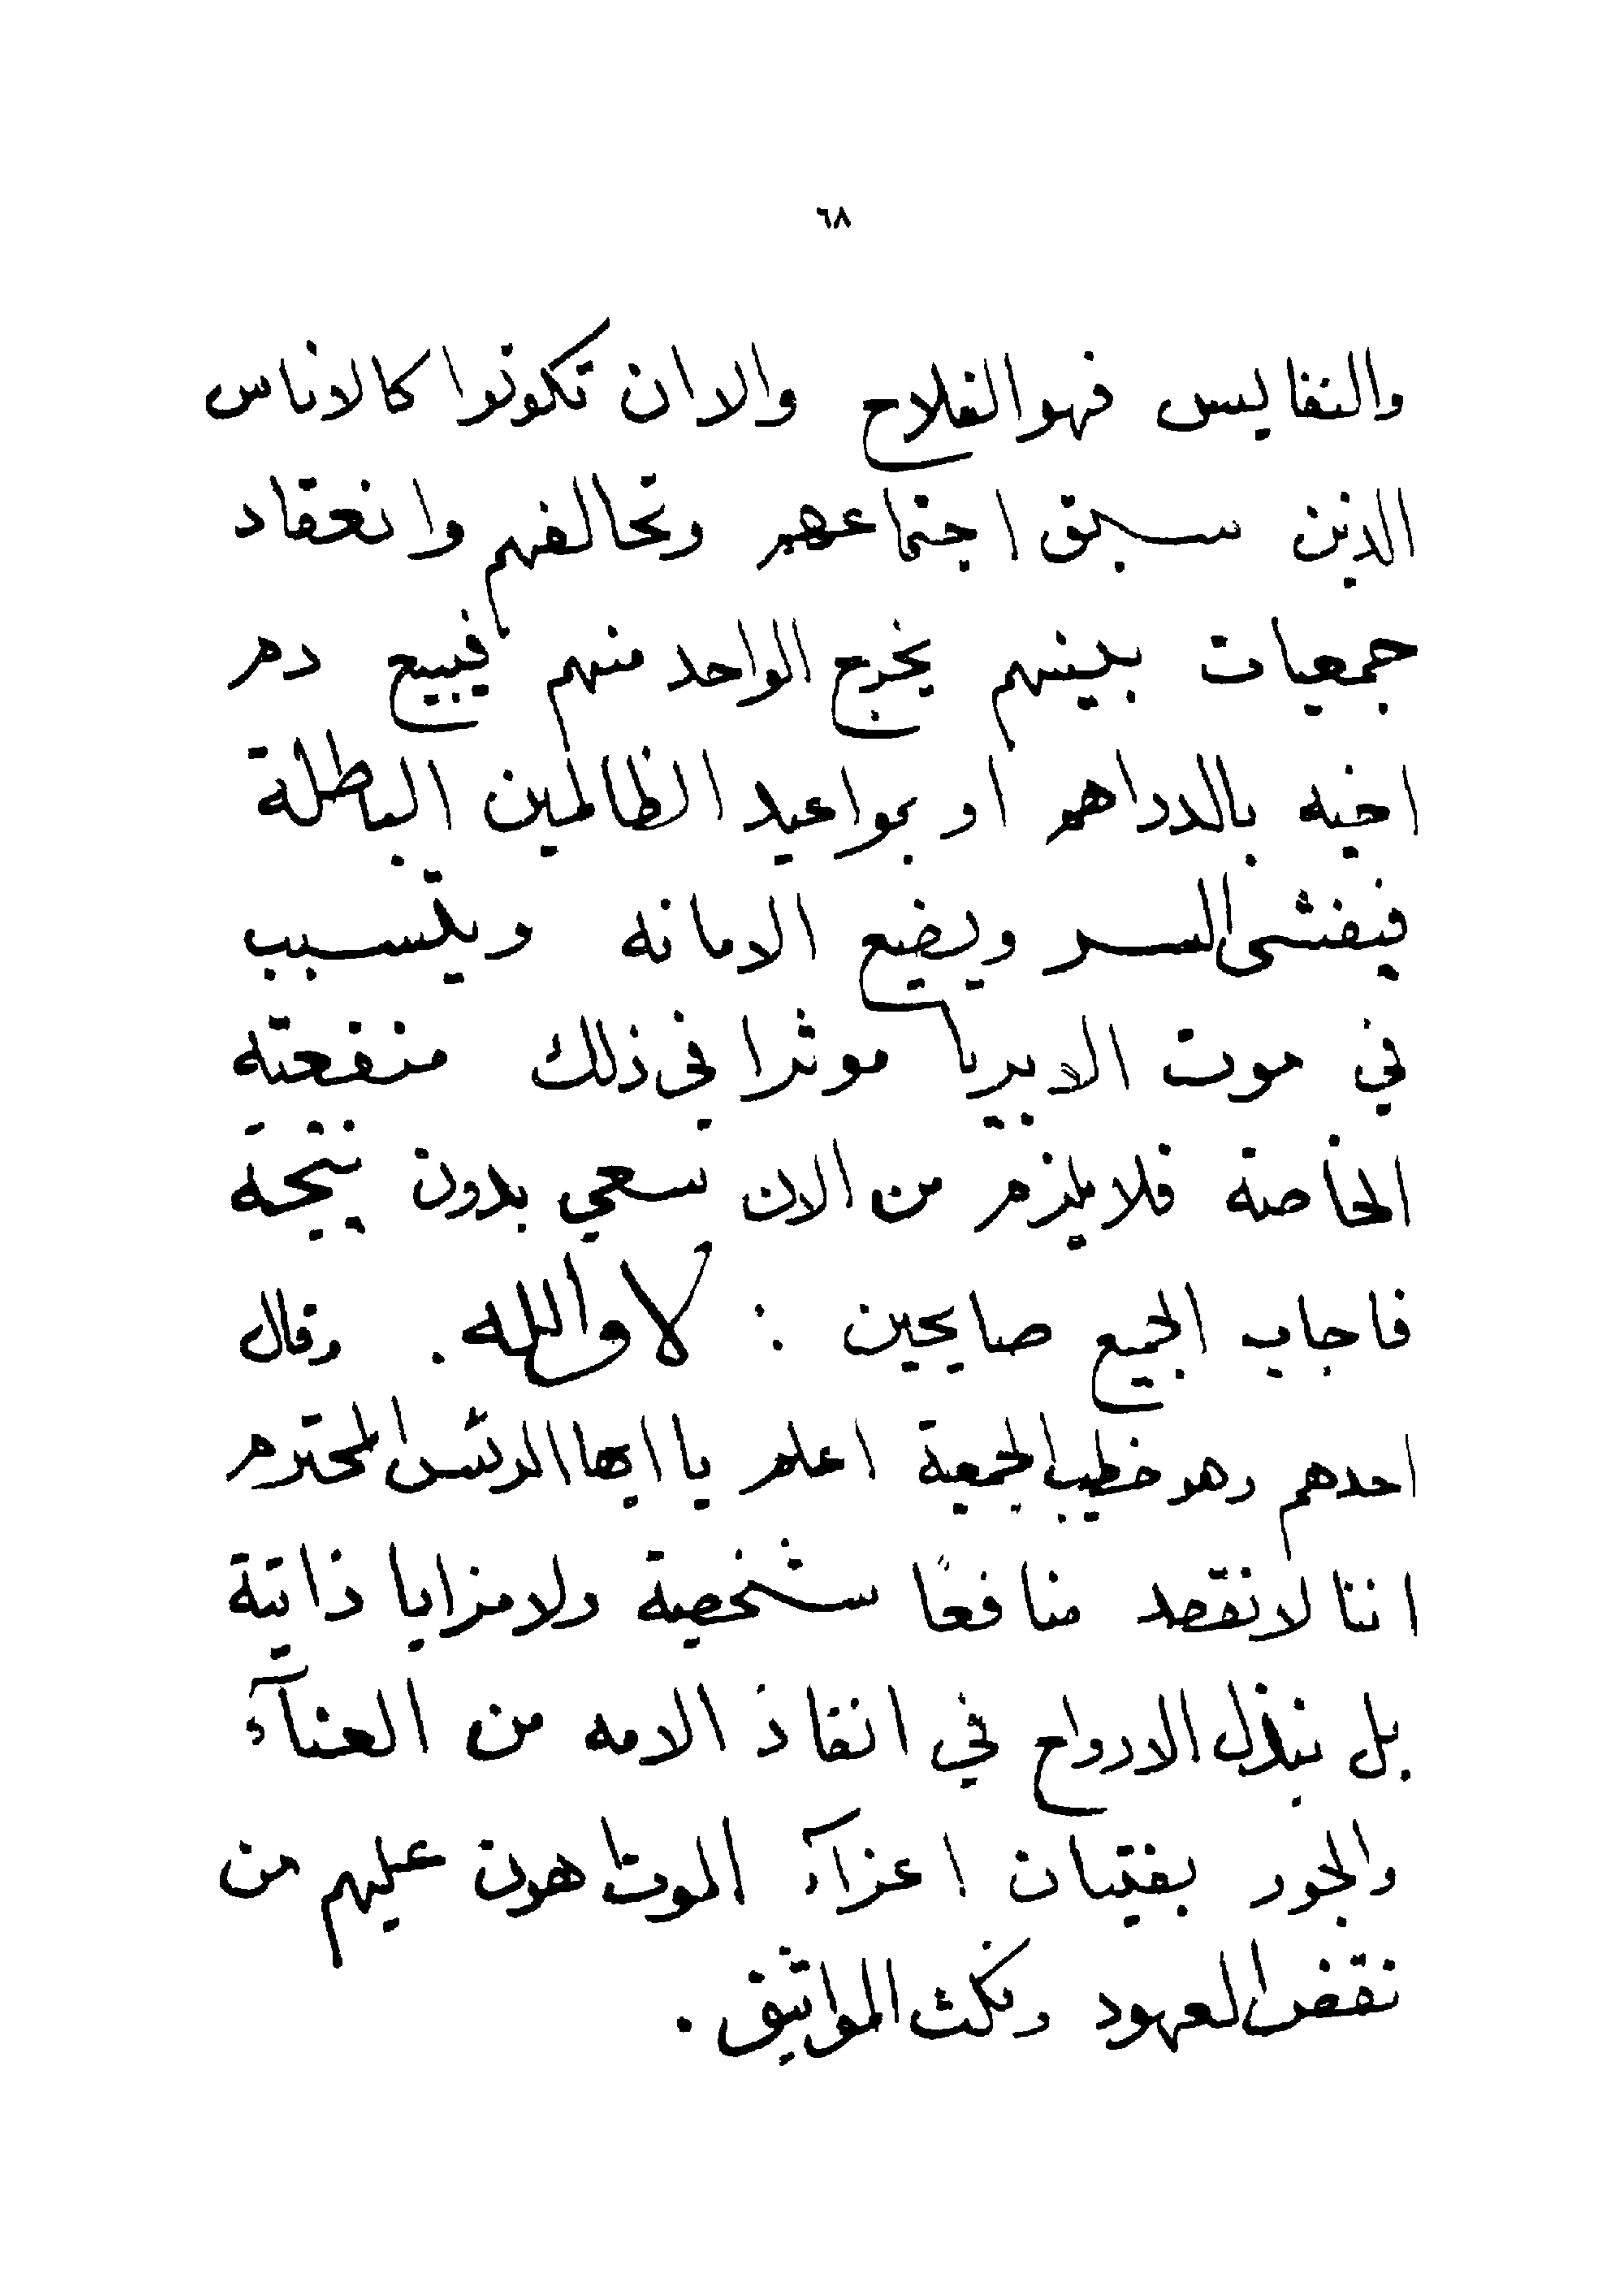 ٦٨
والنفايس فهو الفلاح والا ان تكونوا كالاناس
الذين سبق اجتماعهم وتحالفهم وانعقاد
جمعيات بينهم يخرج الواحد منهم فيبيع دم
اخيه بالدراهم او بمواعيد الظالمين الباطلة
فيفشى السر ويضيع الامانه ويتسبب
في موت الابريا موثرا في ذلك منفعته
الخاصة فلا يلزم من الان نسعي بدون نتيجة
فاجاب الجميع صايحين : لا والله . وقال
احدهم وهو خطيب الجمعية اعلم يا ايها الرئس المحترم
اننا لا نقصد منافعًا شخصية ولا مزايا ذاتية
بل نبذل الارواح في انقاذ الامه من العنآء
والجور بفتيان اعزآء الموت اهون عليهم من
نقض العهود ونكث المواثيق .